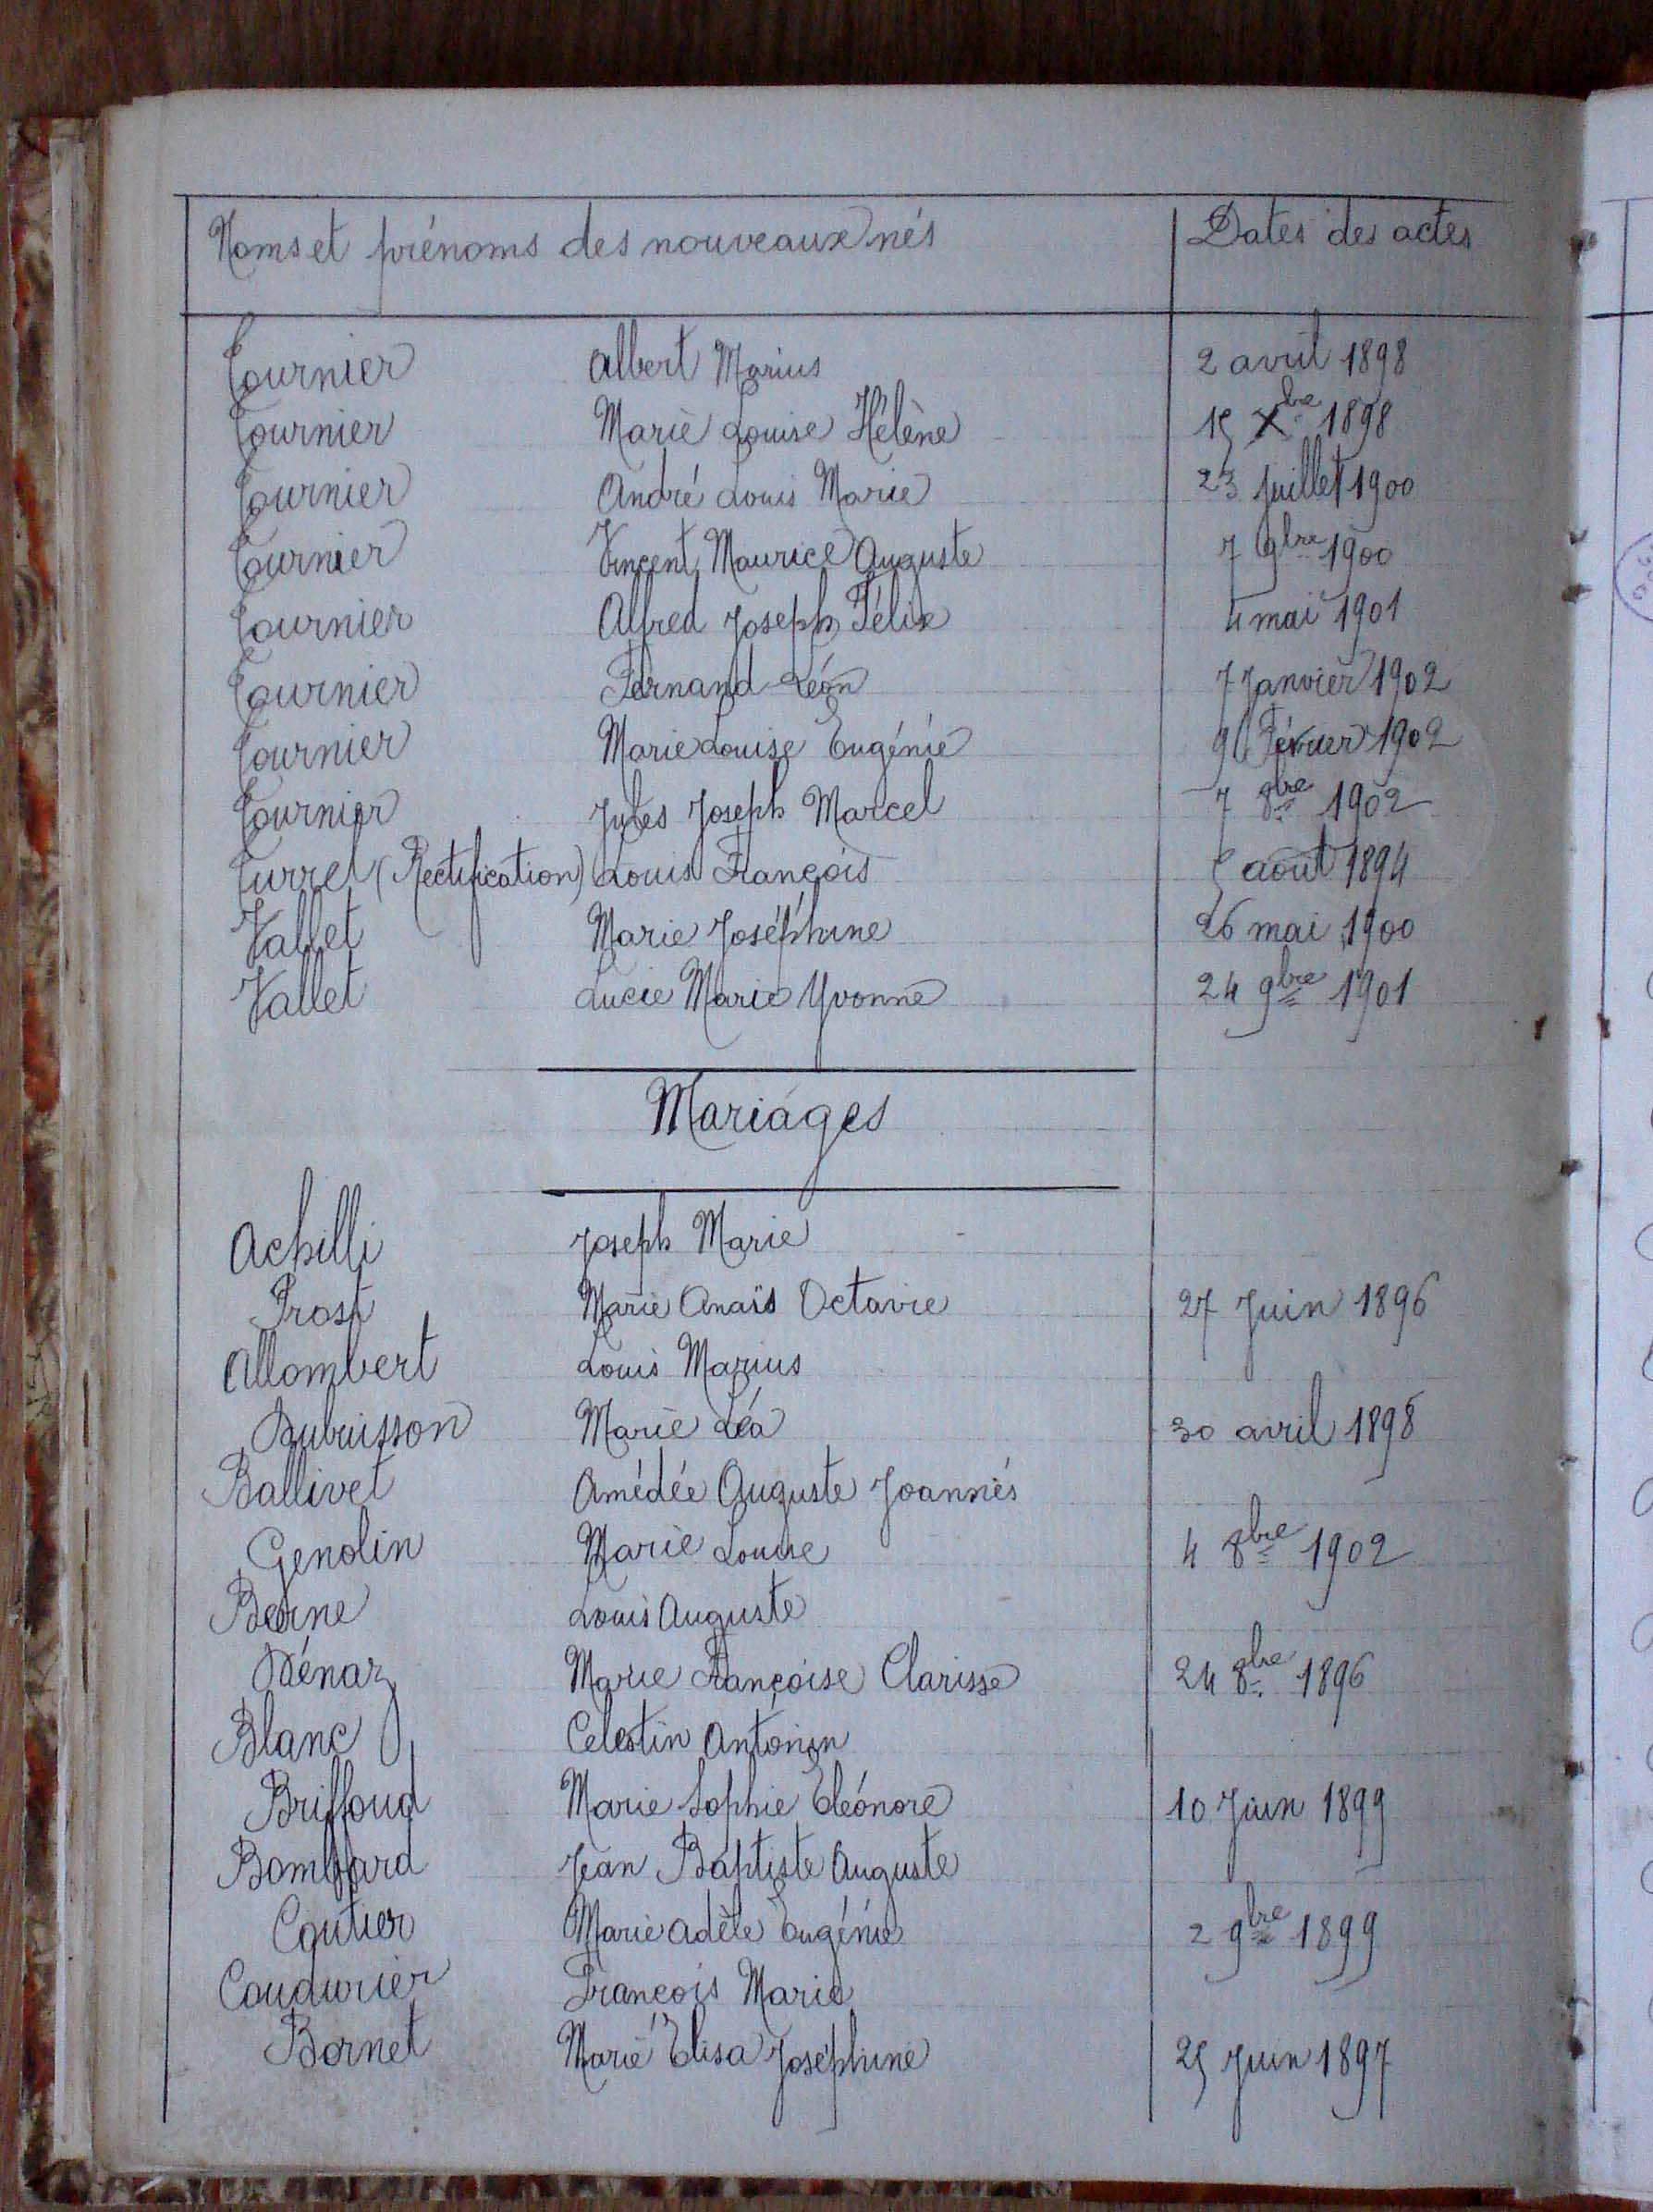 Noms et prénoms des nouveaux nés Dates des actes
Tournier Albert Marius 2 avril 1898
Tournier Marie Louise Hélène 15 Xbre 1898
Tournier André Louis Marie 23 Juillet 1900
Tournier Vincent Maurice Auguste 7 9bre 1900
Tournier Alfred Joseph Félix 4 mai 1901
Tournier Fernand Léon 7 Janvier 1902
Tournier Marie Louise Eugénie 9 Février 1902
Tournier Jules Joseph Marcel 7 8bre 1902
Turrel (Rectification) Louis François 5 août 1894
Vallet Marie Joséphine 26 mai 1900
Vallet Lucie Marie Yvonne 24 9bre 1901
Mariages
Achilli Joseph Marie
Prost Marie Anaïs Octavie 27 Juin 1896
Allombert Louis Marius
Dubuisson Marie Léa 30 avril 1898
Ballivet Amédée Auguste Joannès
Genolin Marie Louise 4 8bre 1902
Berne Louis Auguste
Dénaz Marie Françoise Clarisse 24 8bre 1896
Blanc Celestin Antonin
Briffoud Marie Sophie Eléonore 10 Juin 1899
Bombard Jean Baptiste Auguste
Coutier Marie Adèle Eugénie 2 9bre 1899
Coudurier François Marie
Bornet Marie Elisa Joséphine 25 Juin 1897